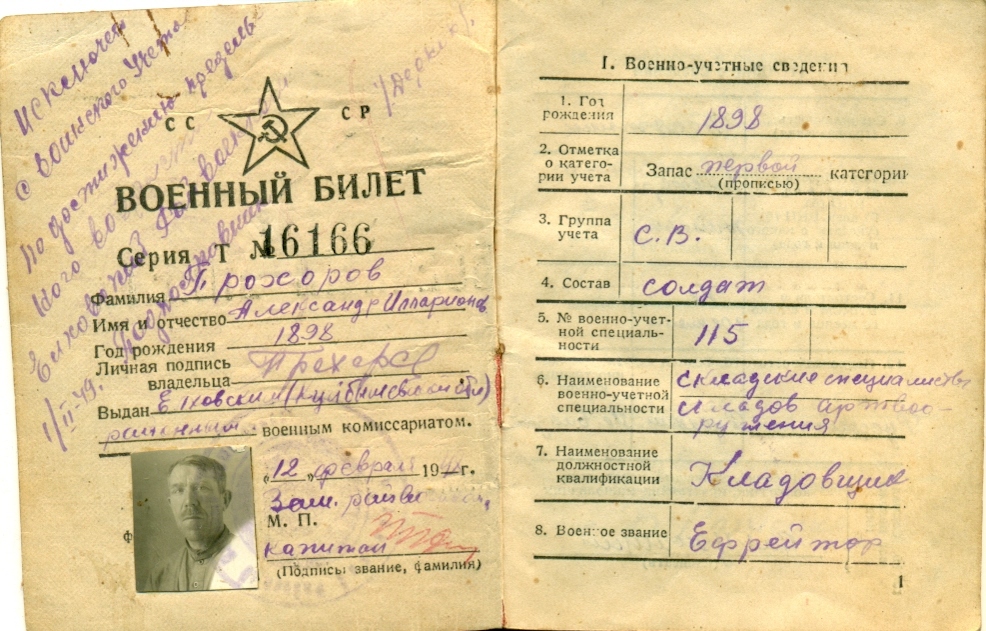 Исключен
с воинского учета
по достижению предель
ного возраст
Елховский
1/II-49.
СС СР
ВОЕННЫЙ БИЛЕТ
Серия Т № 16166
Фамилия Прохоров
Имя и отчество Александр Илларионов
Год рождения 1898
Личная подпись
владельца
Выдан Елховским (Куйбышевской обл)
районным военным комиссариатом.
„12 „ февраля 194 г.
Зам. райво
М. П.
капитан
(Подпись, звание, фамилия)
I. Военно-учетные сведения
1. Год
рождения
1898
2. Отметка
о катего-
рии учета
Запас первой категории
(прописью)
3. Группа
учета
С.В.
4. Состав
солдат
5. № военно-учет-
ной специаль-
ности
115
6. Наименование
военно-учетной
специальности
складские специалисты
складов артвоо-
ружения
7. Наименование
должностной
квалификации
Кладовщик
8. Военное звание
Ефрейтор
1